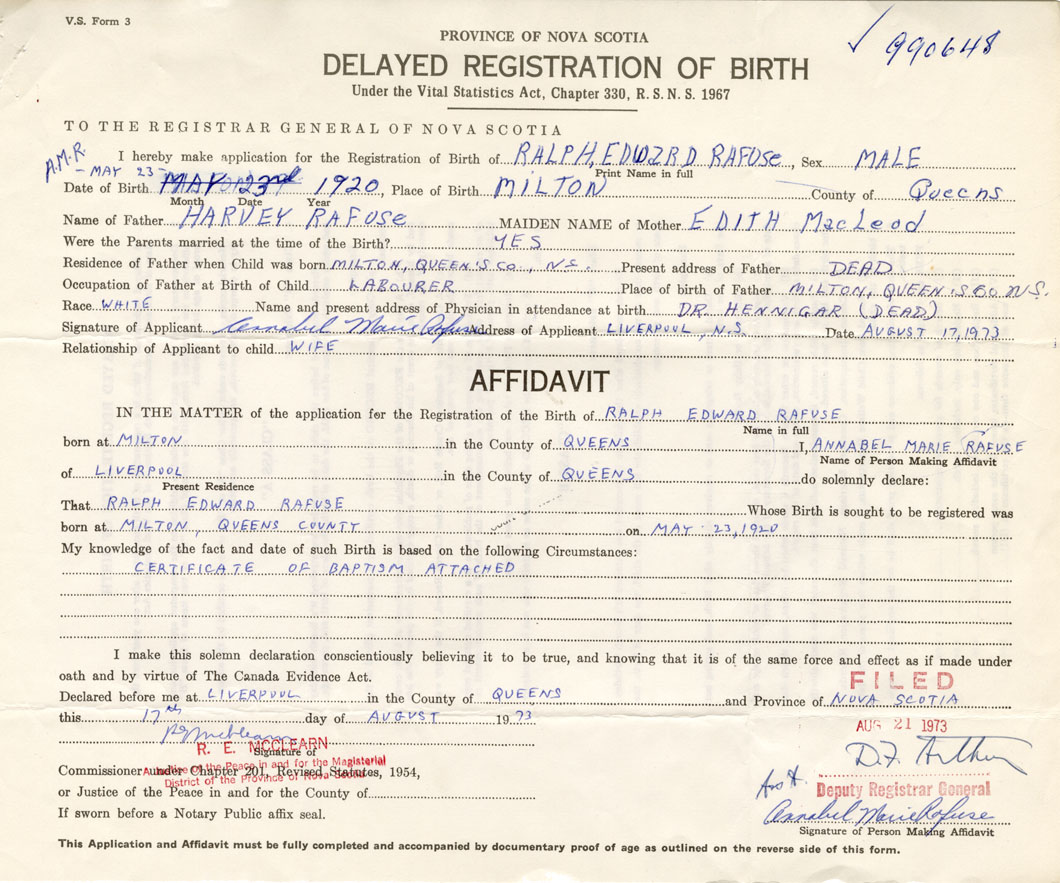 V.S. Form 3
PROVINCE OF NOVA SCOTIA
✓ 990648
DELAYED REGISTRATION OF BIRTH
Under the Vital Statistics Act, Chapter 330, R. S. N. S. 1967
TO THE REGISTRAR GENERAL OF NOVA SCOTIA
A.M.R.
I hereby make application for the Registration of Birth of RALPH, EDWARD RAFUSE, Sex MALE
Print Name in full
– MAY 23 –
Date of Birth MAY 23nd 1920, Place of Birth MILTON County of Queens
Month Date Year
Name of Father HARVEY RAFUSE MAIDEN NAME of Mother EDITH MacLeod
Were the Parents married at the time of the Birth? YES
Residence of Father when Child was born MILTON, QUEEN'S CO., N.S. Present address of Father DEAD
Occupation of Father at Birth of Child LABOURER Place of birth of Father MILTON, QUEEN'S CO. N.S.
Race WHITE Name and present address of Physician in attendance at birth DR. HENNIGAR (DEAD)
Signature of Applicant Annabel Marie Rafuse Address of Applicant LIVERPOOL, N.S. Date AUGUST 17, 1973
Relationship of Applicant to child WIFE
AFFIDAVIT
IN THE MATTER of the application fer the Registration of the Birth of RALPH EDWARD RAFUSE
Name in full
born at MILTON in the County of QUEENS I, ANNABEL MARIE RAFUSE
Name of Person Making Affidavit
of LIVERPOOL in the County of QUEENS do solemnly declare:
Present Residence
That RALPH EDWARD RAFUSE Whose Birth is sought to be registered was
born at MILTON, QUEENS COUNTY on MAY 23, 1920
My knowledge of the fact and date of such Birth is based on the following Circumstances:
CERTIFICATE OF BAPTISM ATTACHED
I make this solemn declaration conscientiously believing it to be true, and knowing that it is of the same force and effect as if made under
oath and by virtue of The Canada Evidence Act.
FILED
Declared before me at LIVERPOOL in the County of QUEENS and Province of NOVA SCOTIA
this 17th day of AUGUST 1973
AUG 21 1973
RE McClearn
R. E. MCCLEARN
Signature of
A Justice of the Peace in and for the Magisterial
Commissioner under Chapter 201, Revised Statutes, 1954,
District of the Province of Nova Scotia
or Justice of the Peace in and for the County of
Deputy Registrar General
If sworn before a Notary Public affix seal.
Annabel Marie Rafuse
Signature of Person Making Affidavit
This Application and Affidavit must be fully completed and accompanied by documentary proof of age as outlined on the reverse side of this form.